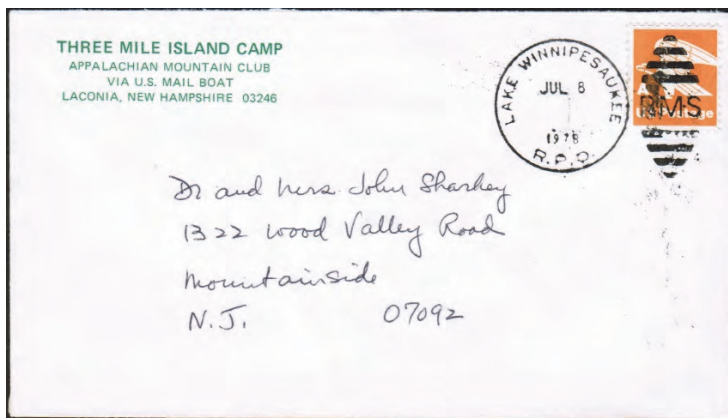 THREE MILE ISLAND CAMP
APPALACHIAN MOUNTAIN CLUB
VIA U.S. MAIL BOAT
LACONIA, NEW HAMPSHIRE 03246
LAKE WINNIPESAUKEE
JUL 8
1978
R.P.O.
RMS
Dr and Mrs. John Sharkey
1322 Wood Valley Road
Mountainside
N.J. 07092